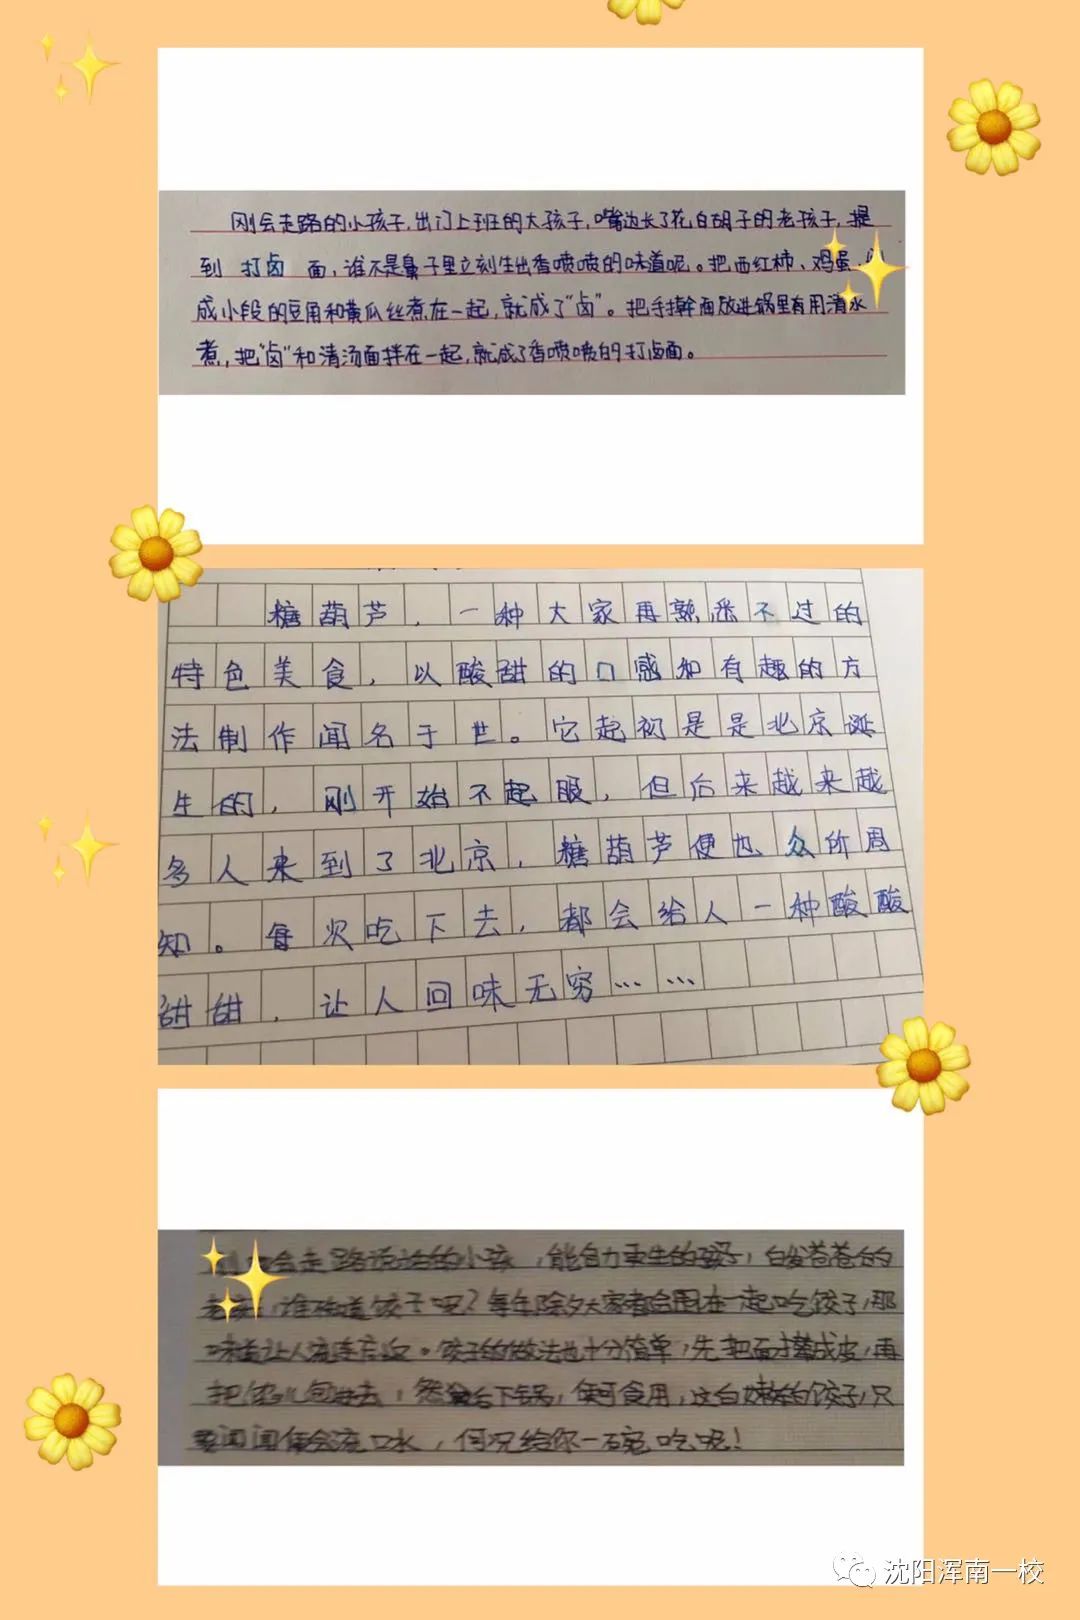 刚会走路的小孩子,出门上班的大孩子,嘴边长了花白胡子的老孩子,提
到 打卤 面,谁不是鼻子里立刻生出香喷喷的味道呢。把西红柿、鸡蛋、
成小段的豆角和黄瓜丝煮在一起,就成了“卤”。把手擀面放进锅里有用清水
煮,把“卤”和清汤面拌在一起,就成了香喷喷的打卤面。
糖葫芦,一种大家再熟悉不过的
特色美食,以酸甜的口感和有趣的方
法制作闻名于世。它起初是是北京诞
生的,刚开始不起眼,但后来越来越
多人来到了北京,糖葫芦便也众所周
知。每次吃下去,都会给人一种酸酸
甜甜,让人回味无穷……
会走路说话的小孩,能自力更生的孩子,白发苍苍的
老,谁不知道饺子呢?每年除夕大家都会围在一起吃饺子,那
味道让人流连忘返。饺子的做法也十分简单,先把面擀成皮,再
把馅儿包进去,然后下锅,便可食用,这白嫩嫩的饺子,只
要闻闻便会流口水,何况给你一碗吃呢!
沈阳浑南一校